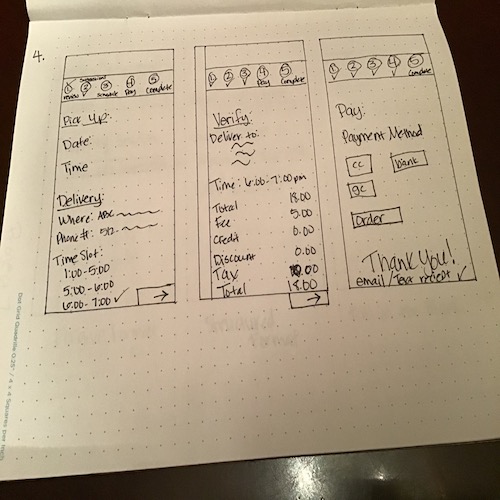 4.
1 2 3 4 5
Suggestions
review Schedule Pay Complete
Pick Up:
Date:
Time
Delivery:
Where: ABC
Phone #: 512-
Time Slot:
1:00-5:00
5:00-6:00
6:00-7:00 ✓
→
1 2 3 4 5
Pay Complete
Verify:
Deliver to:
Time: 6:00-7:00pm
Total 18.00
Fee 5.00
Credit 0.00
Discount 0.00
Tax 0.00
Total 18.00
→
1 2 3 4 5
Complete
Pay:
Payment Method
CC bank
gc
Order
Thank You!
email/Text reciept ✓
Dot Grid Quadrille 0.25" / 4 x 4 Squares per Inch